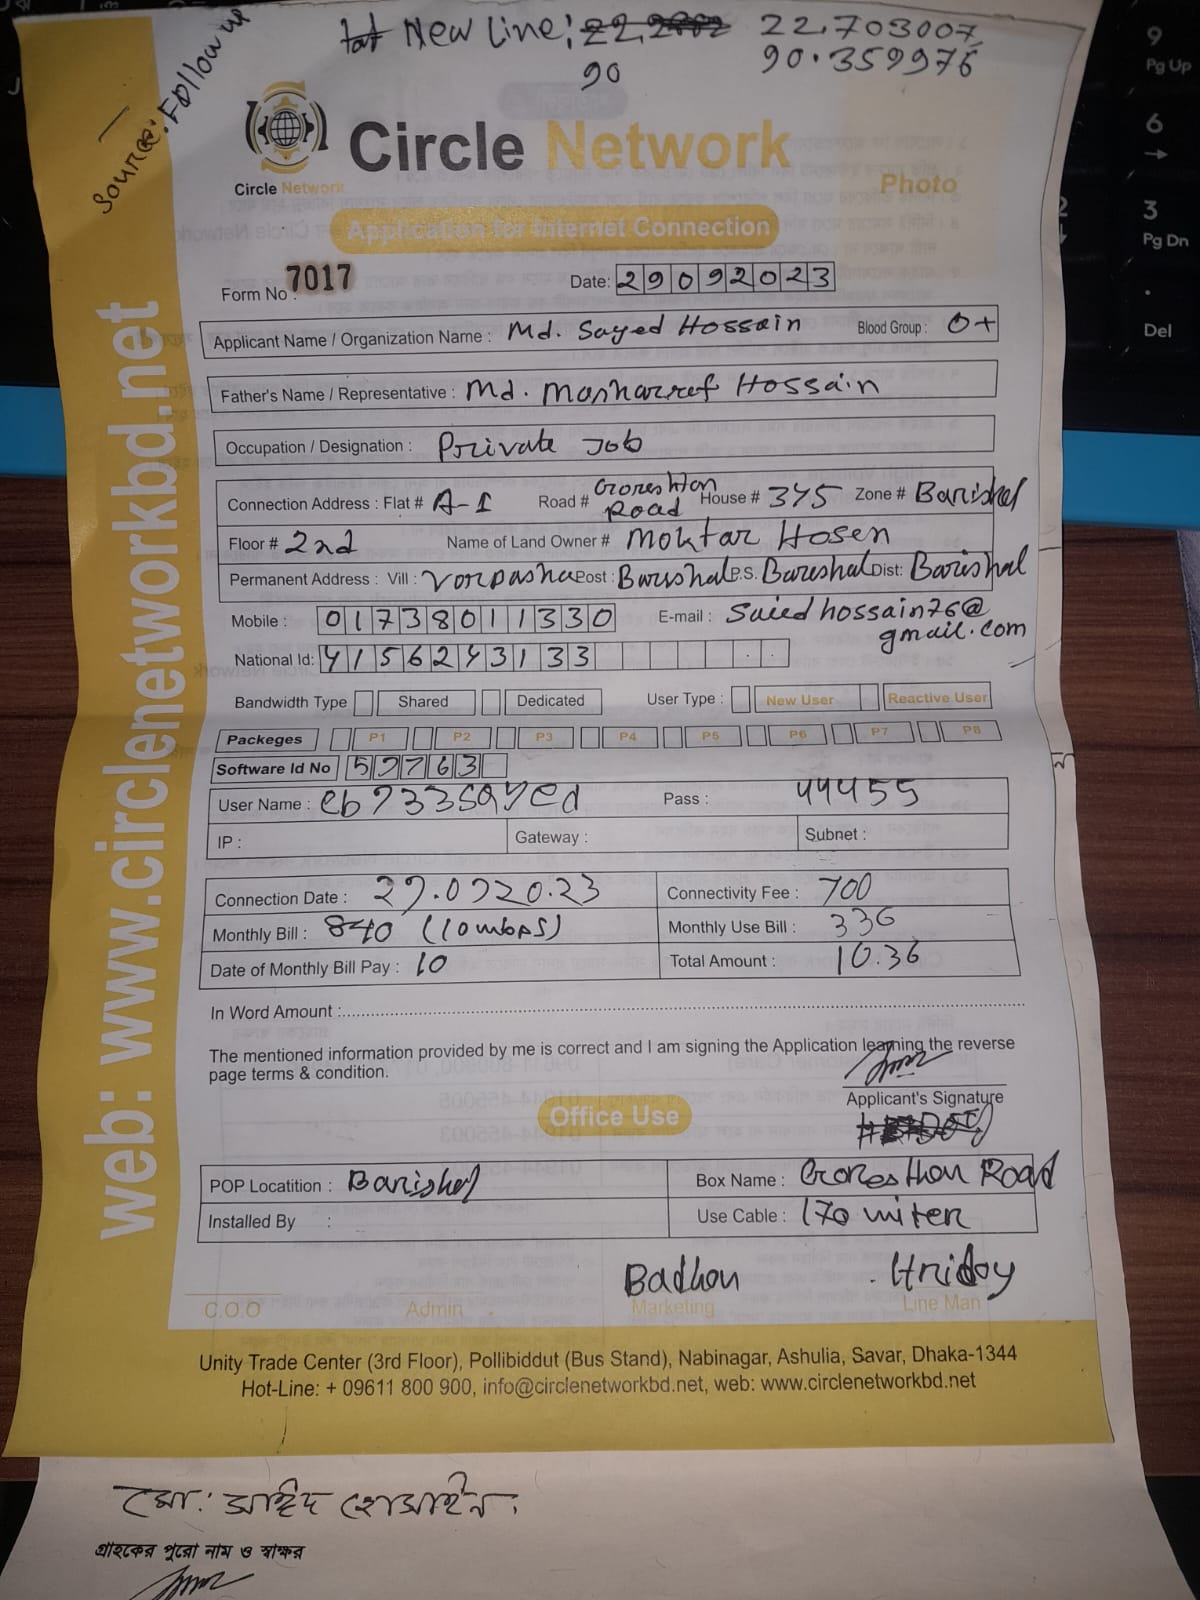 New Line: 22.703007,
90 90.359976
Source: Follow up
Circle Network
Circle Network
Photo
Application for Internet Connection
Form No : 7017 Date: 29092023
Applicant Name / Organization Name : Md. Sayed Hossain Blood Group : O+
Father's Name / Representative : Md. Mosharref Hossain
Occupation / Designation : Private Job
Connection Address : Flat # A-1 Road # Goresthan Road House # 345 Zone # Barishal
Floor # 2nd Name of Land Owner # Moktar Hosen
Permanent Address : Vill : Vorpasha Post : Barishal P.S. Bareshal Dist: Barishal
Mobile : 01738011330 E-mail : Saiedhossain76@gmail.com
National Id: 4156243133
Bandwidth Type Shared Dedicated User Type : New User Reactive User
Packeges P1 P2 P3 P4 P5 P6 P7 P8
Software Id No 59763
User Name : eb733sayed Pass : 44455
IP : Gateway : Subnet :
Connection Date : 29.092023 Connectivity Fee : 700
Monthly Bill : 840 (10mbps) Monthly Use Bill : 336
Date of Monthly Bill Pay : 10 Total Amount : 10.36
In Word Amount :
The mentioned information provided by me is correct and I am signing the Application learning the reverse
page terms & condition.
Applicant's Signature
Office Use
POP Locatition : Barishal Box Name : Goresthan Road
Installed By : Use Cable : 170 miter
Badhon Hridoy
C.O.O Admin Marketing Line Man
Unity Trade Center (3rd Floor), Pollibiddut (Bus Stand), Nabinagar, Ashulia, Savar, Dhaka-1344
Hot-Line: + 09611 800 900, info@circlenetworkbd.net, web: www.circlenetworkbd.net
web: www.circlenetworkbd.net
মো: সাঈদ হোসাইন
গ্রাহকের পুরো নাম ও স্বাক্ষর
9
Pg Up
6
→
3
Pg Dn
.
Del